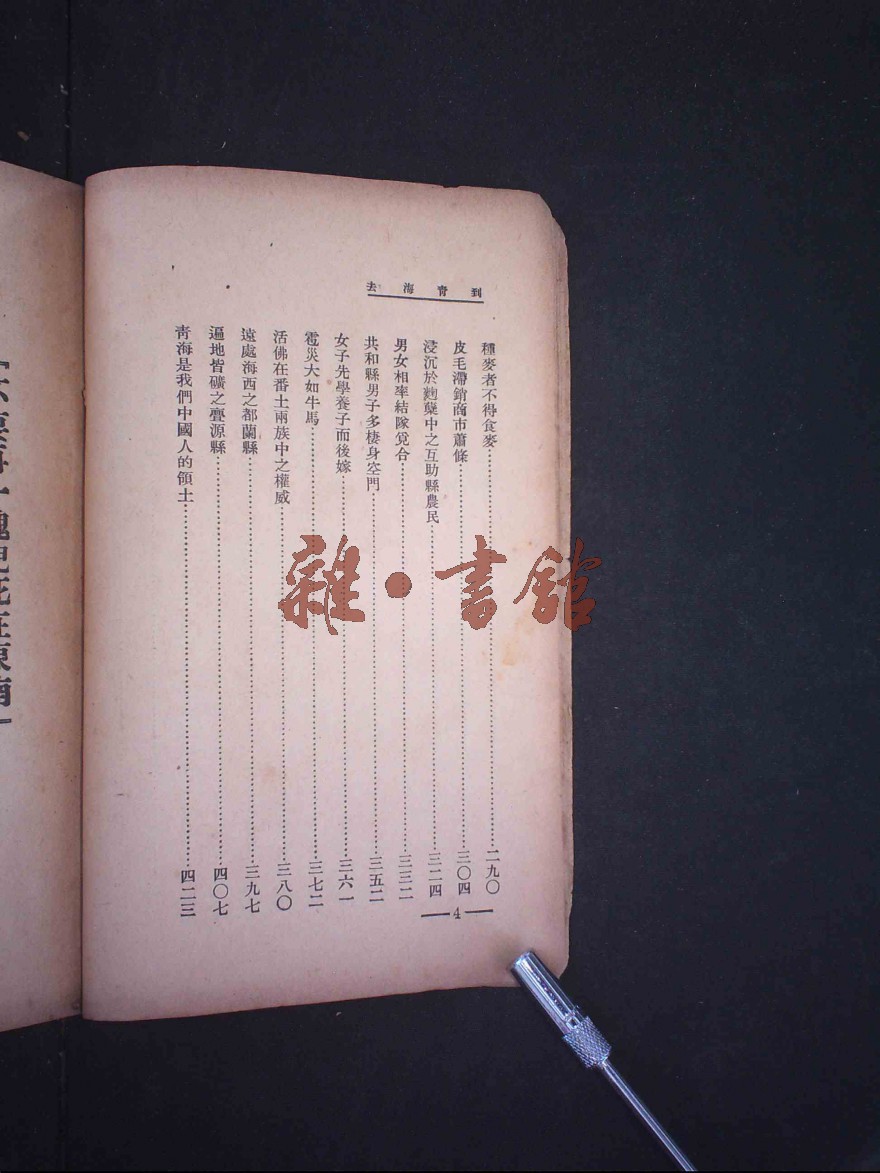 到青海去
種麥者不得食麥……二九〇
皮毛滯銷商市蕭條……三〇四
浸沉於麴糵中之互助縣農民……三二四
男女相率結隊覓合……三三二
共和縣男子多棲身空門……三五二
女子先學養子而後嫁……三六一
雹災大如牛馬……三七二
活佛在番土兩族中之權威……三八〇
遠處海西之都蘭縣……三九七
遍地皆礦之亹源縣……四〇七
青海是我們中國人的領土……四二三
— 4 —
雜·書館